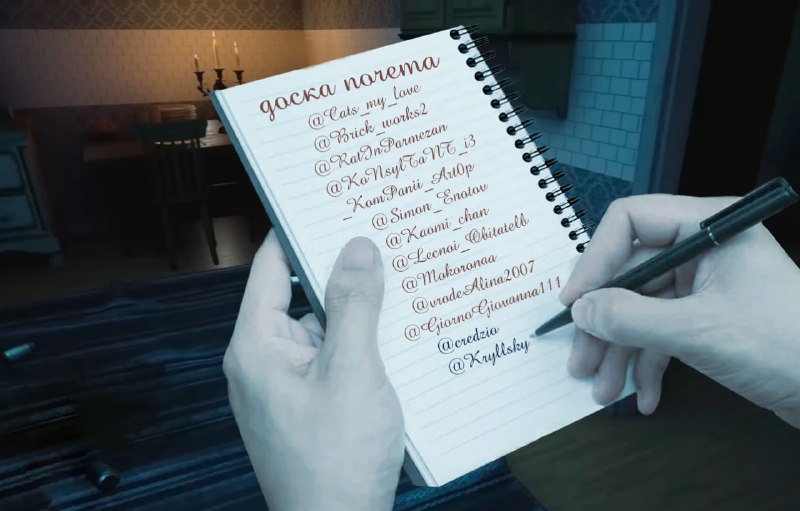 доска почета
@Cats_my_love
@Brick_works2
@RatInParmezan
@KoNsylTaNT_i3
_KomPanii_Art0p
@Simon_Enotov
@Kaomi_chan
@Lecnoi_Obitatell
@Mokoronaa
@vrodeAlina2007
@GiornoGiovanna111
@credzio
@Kryllsky